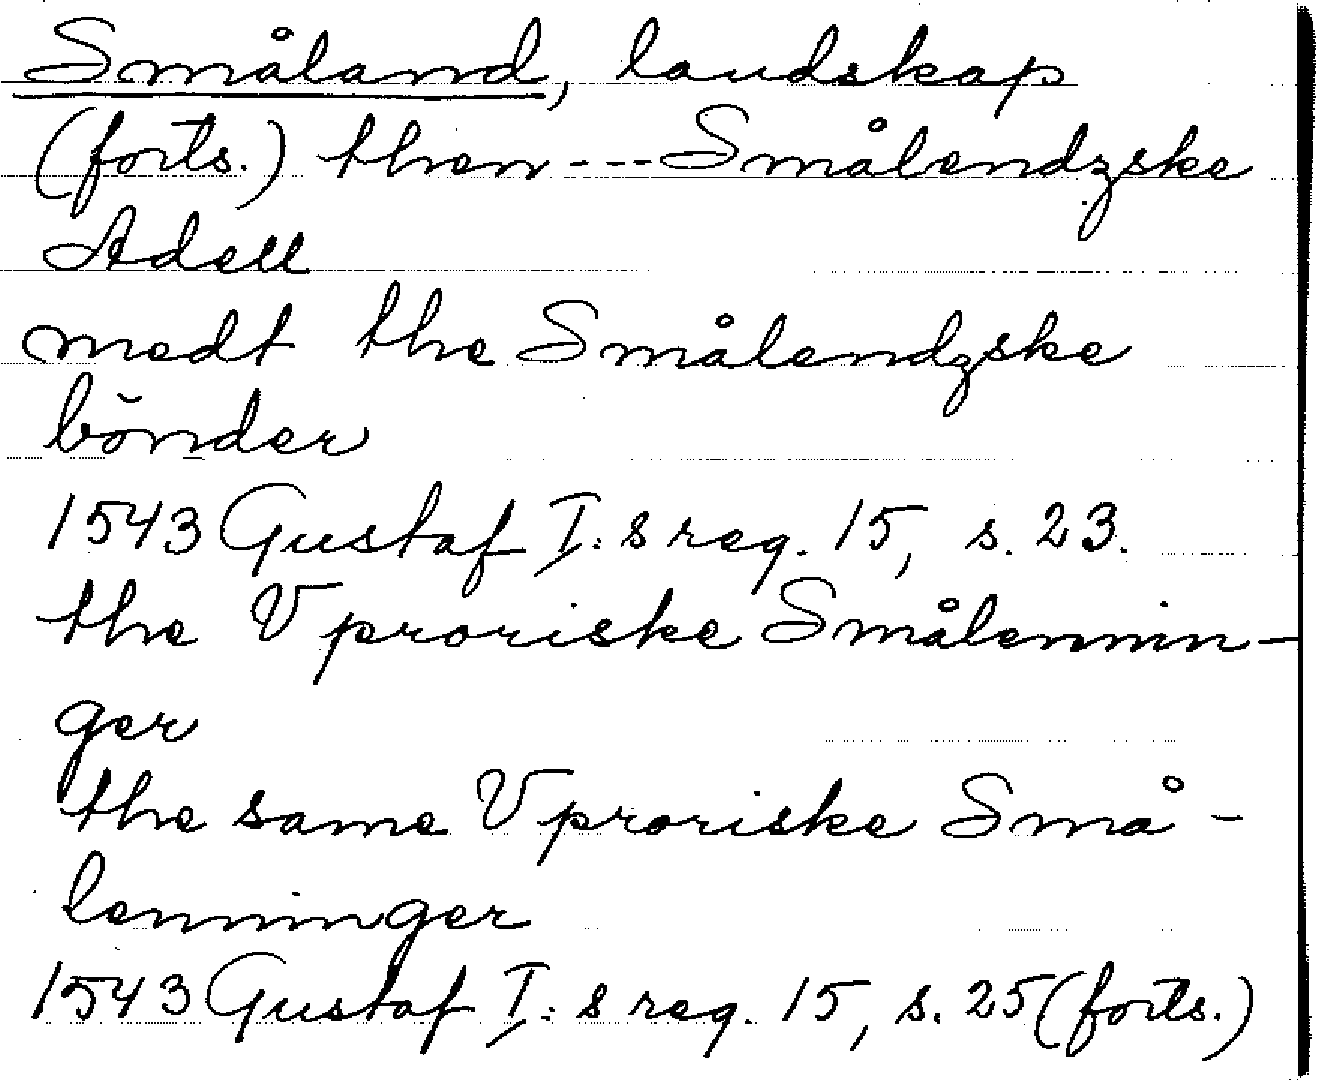 Småland, landskap
(forts.) then---Smålendzske
Adell
medt the Smålendzske
bönder
1543 Gustaf I:s reg. 15, s. 23.
the Vproriske Smålennin-
ger
the same Vproriske Små-
lenninger
1543 Gustaf I:s reg. 15, s. 25 (forts.)